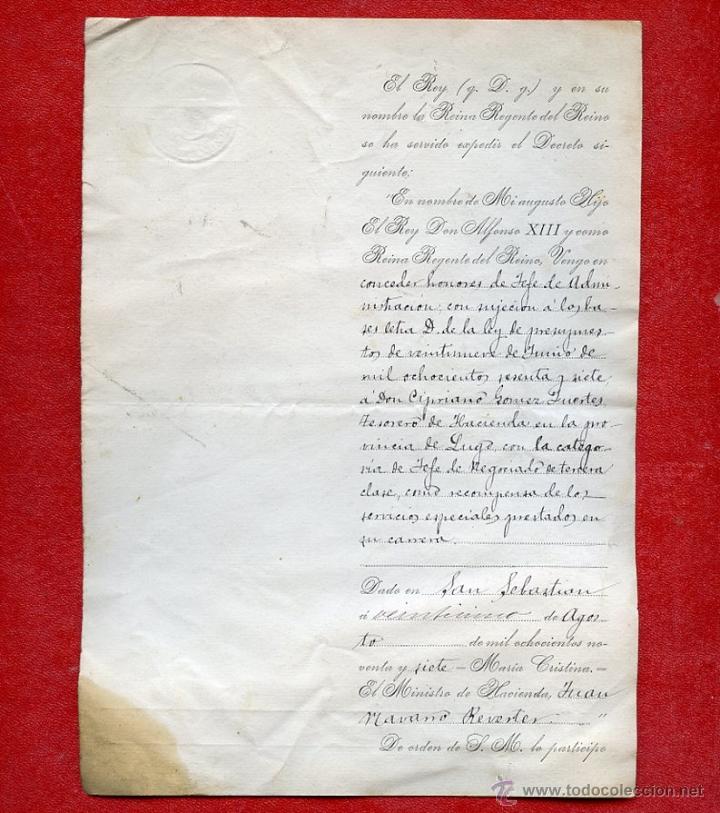 El Rey (q. D. g.) y en su
nombre la Reina Regente del Reino
se ha servido expedir el Decreto si-
guiente:
"En nombre de Mi augusto Hijo
El Rey Don Alfonso XIII y como
Reina Regente del Reino, Vengo en
conceder honores de Jefe de Admi-
nistración, con sujecion á las ba-
ses letra D. de la ley de presupues-
tos de veintinueve de Junio de
mil ochocientos sesenta y siete,
á Don Cipriano Gomez Fuertes,
Tesorero de Hacienda en la pro-
vincia de Lugo, con la catego-
ría de Jefe de Negociado de tercera
clase, como recompensa de los
servicios especiales prestados en
su carrera.
Dado en San Sebastian
á de Agos-
to de mil ochocientos no-
venta y siete — María Cristina. —
El Ministro de Hacienda, Juan
Navarro Reverter "
De orden de S. M. lo participo
www.todocoleccion.net